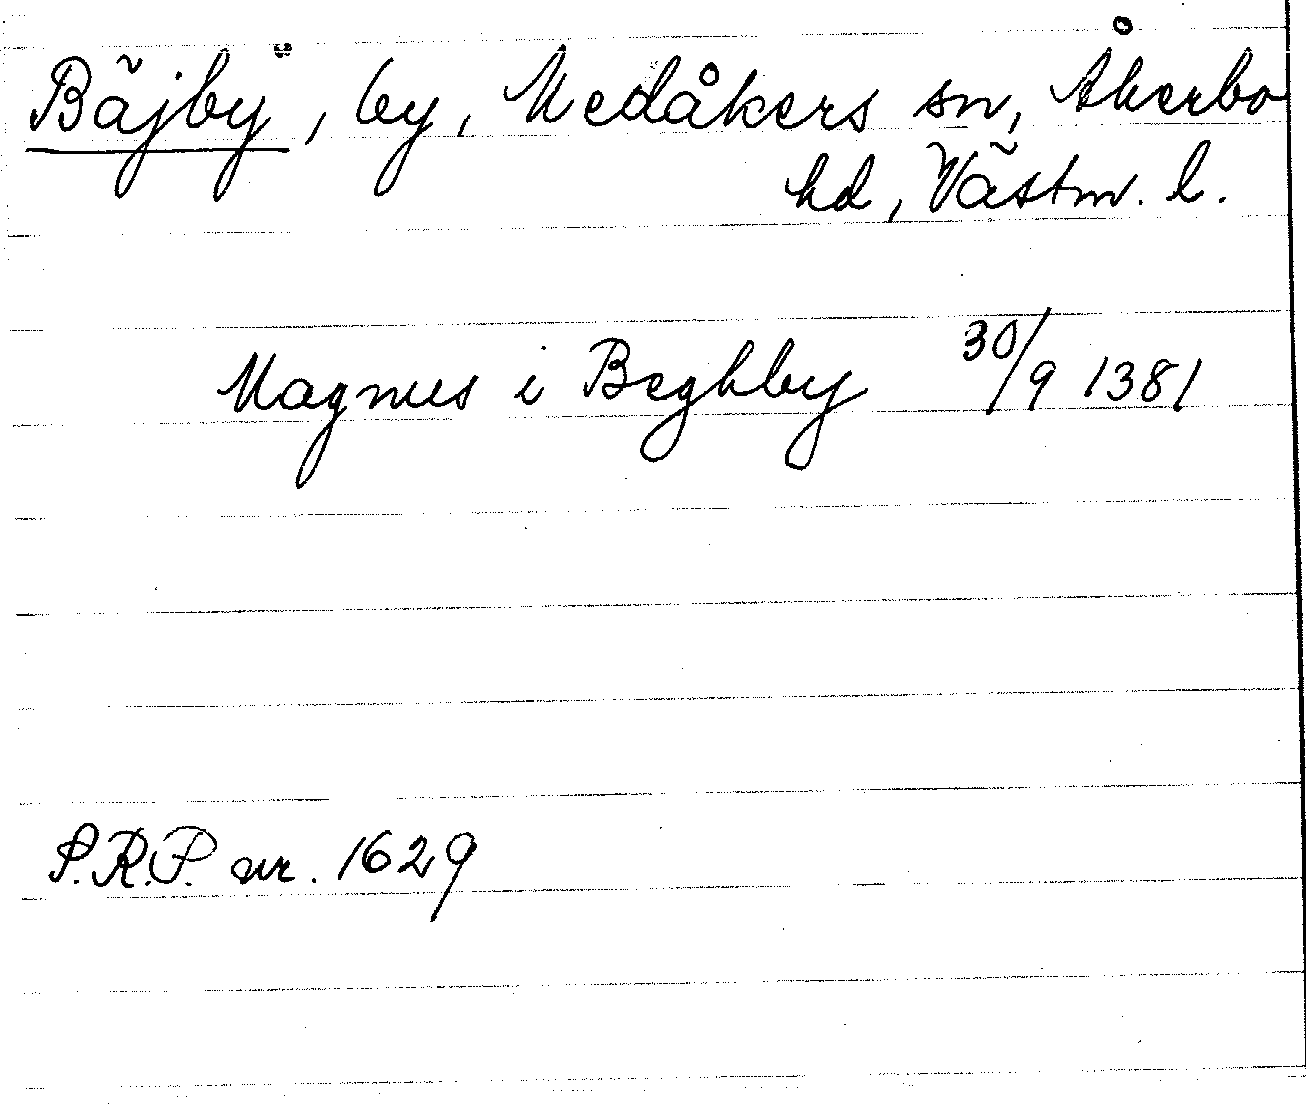 Bäjby, by, Medåkers sn, Åkerbo
hd, Västm. l.
Magnus i Beghby 30/9 1381
S.R.P. nr. 1629